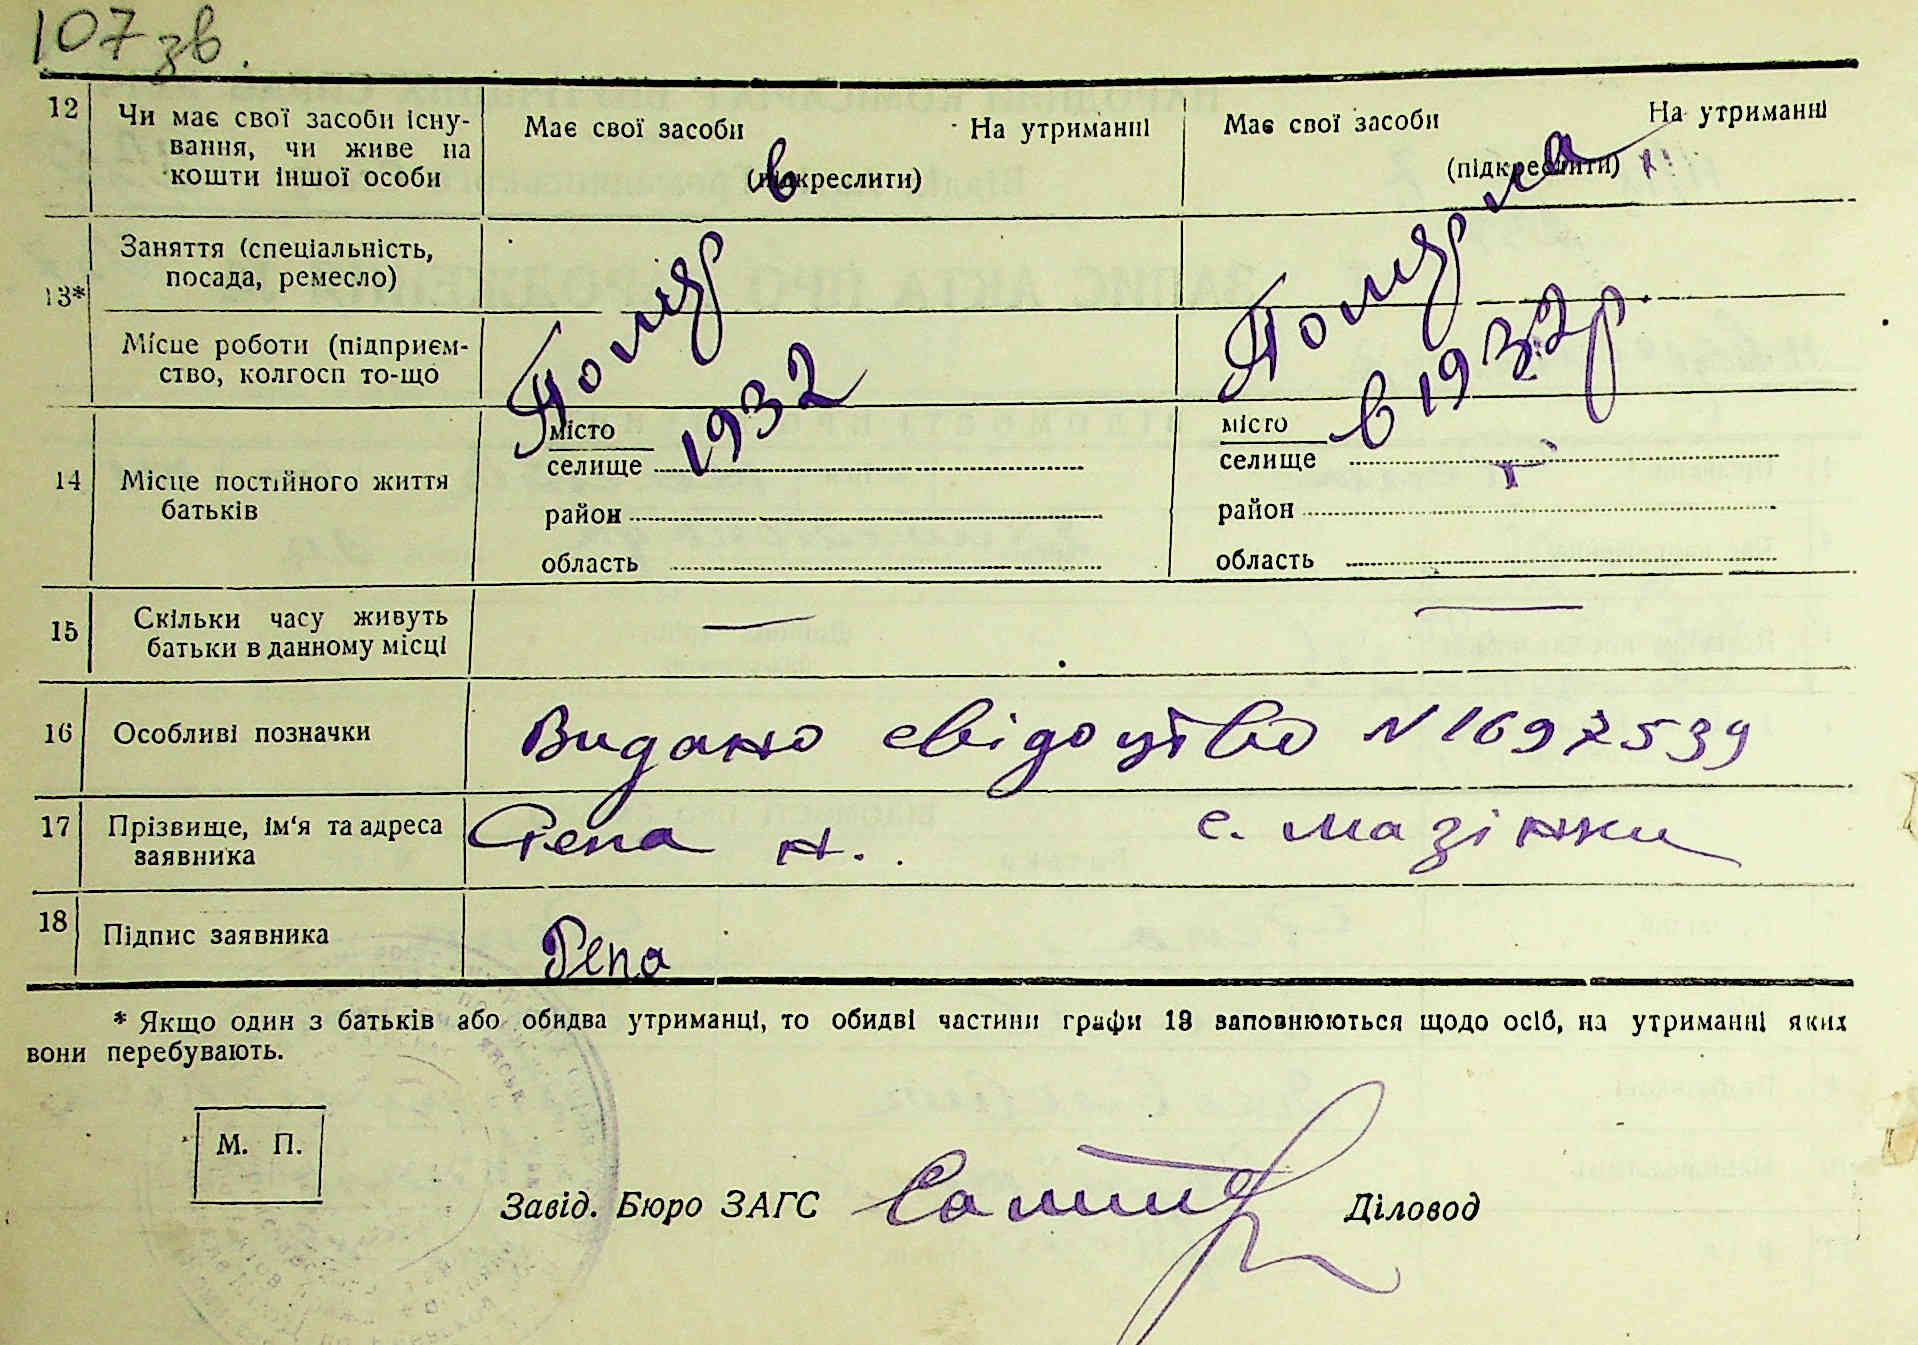 107 зв.
12 Чи має свої засоби існу-
вання, чи живе на
кошти іншої особи
Має свої засоби На утриманні
(підкреслити)
Має свої засоби На утриманні
(підкреслити)
13* Заняття (спеціальність,
посада, ремесло)
Місце роботи (підприєм-
ство, колгосп то-що
Помер в
1932
Померла
в 1932 р.
14 Місце постійного життя
батьків
місто
селище
район
область
місто
селище
район
область
15 Скільки часу живуть
батьки в данному місці
— —
16 Особливі позначки
Видано свідоцтво N 1697539
17 Прізвище, ім‘я та адреса
заявника
Репа н. с. мазінки
18 Підпис заявника
Репа
* Якщо один з батьків або обидва утриманці, то обидві частини графи 13 заповнюються щодо осіб, на утриманні яких
вони перебувають.
М. П.
Завід. Бюро ЗАГС Діловод